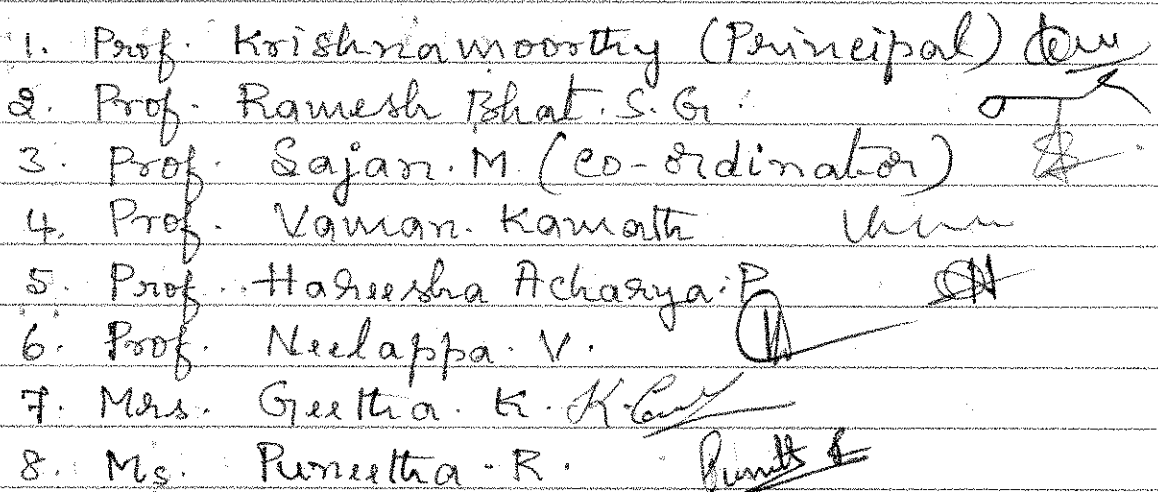 1. Prof. Krishnamoorthy (Principal)
2. Prof. Ramesh Bhat. S. G.
3. Prof. Sajan. M. (co-ordinator)
4. Prof. Vaman. Kamath
5. Prof. Hareesha Acharya. P
6. Prof. Neelappa. V.
7. Mrs. Geetha. K.
8. Ms. Puneetha. R.